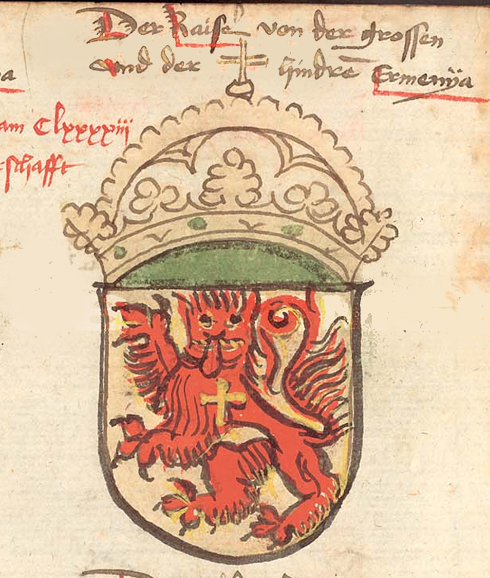 Der Kaiser von der grossen
und der hindrē Ermenÿa
a
am Clxxxxiii
schafft